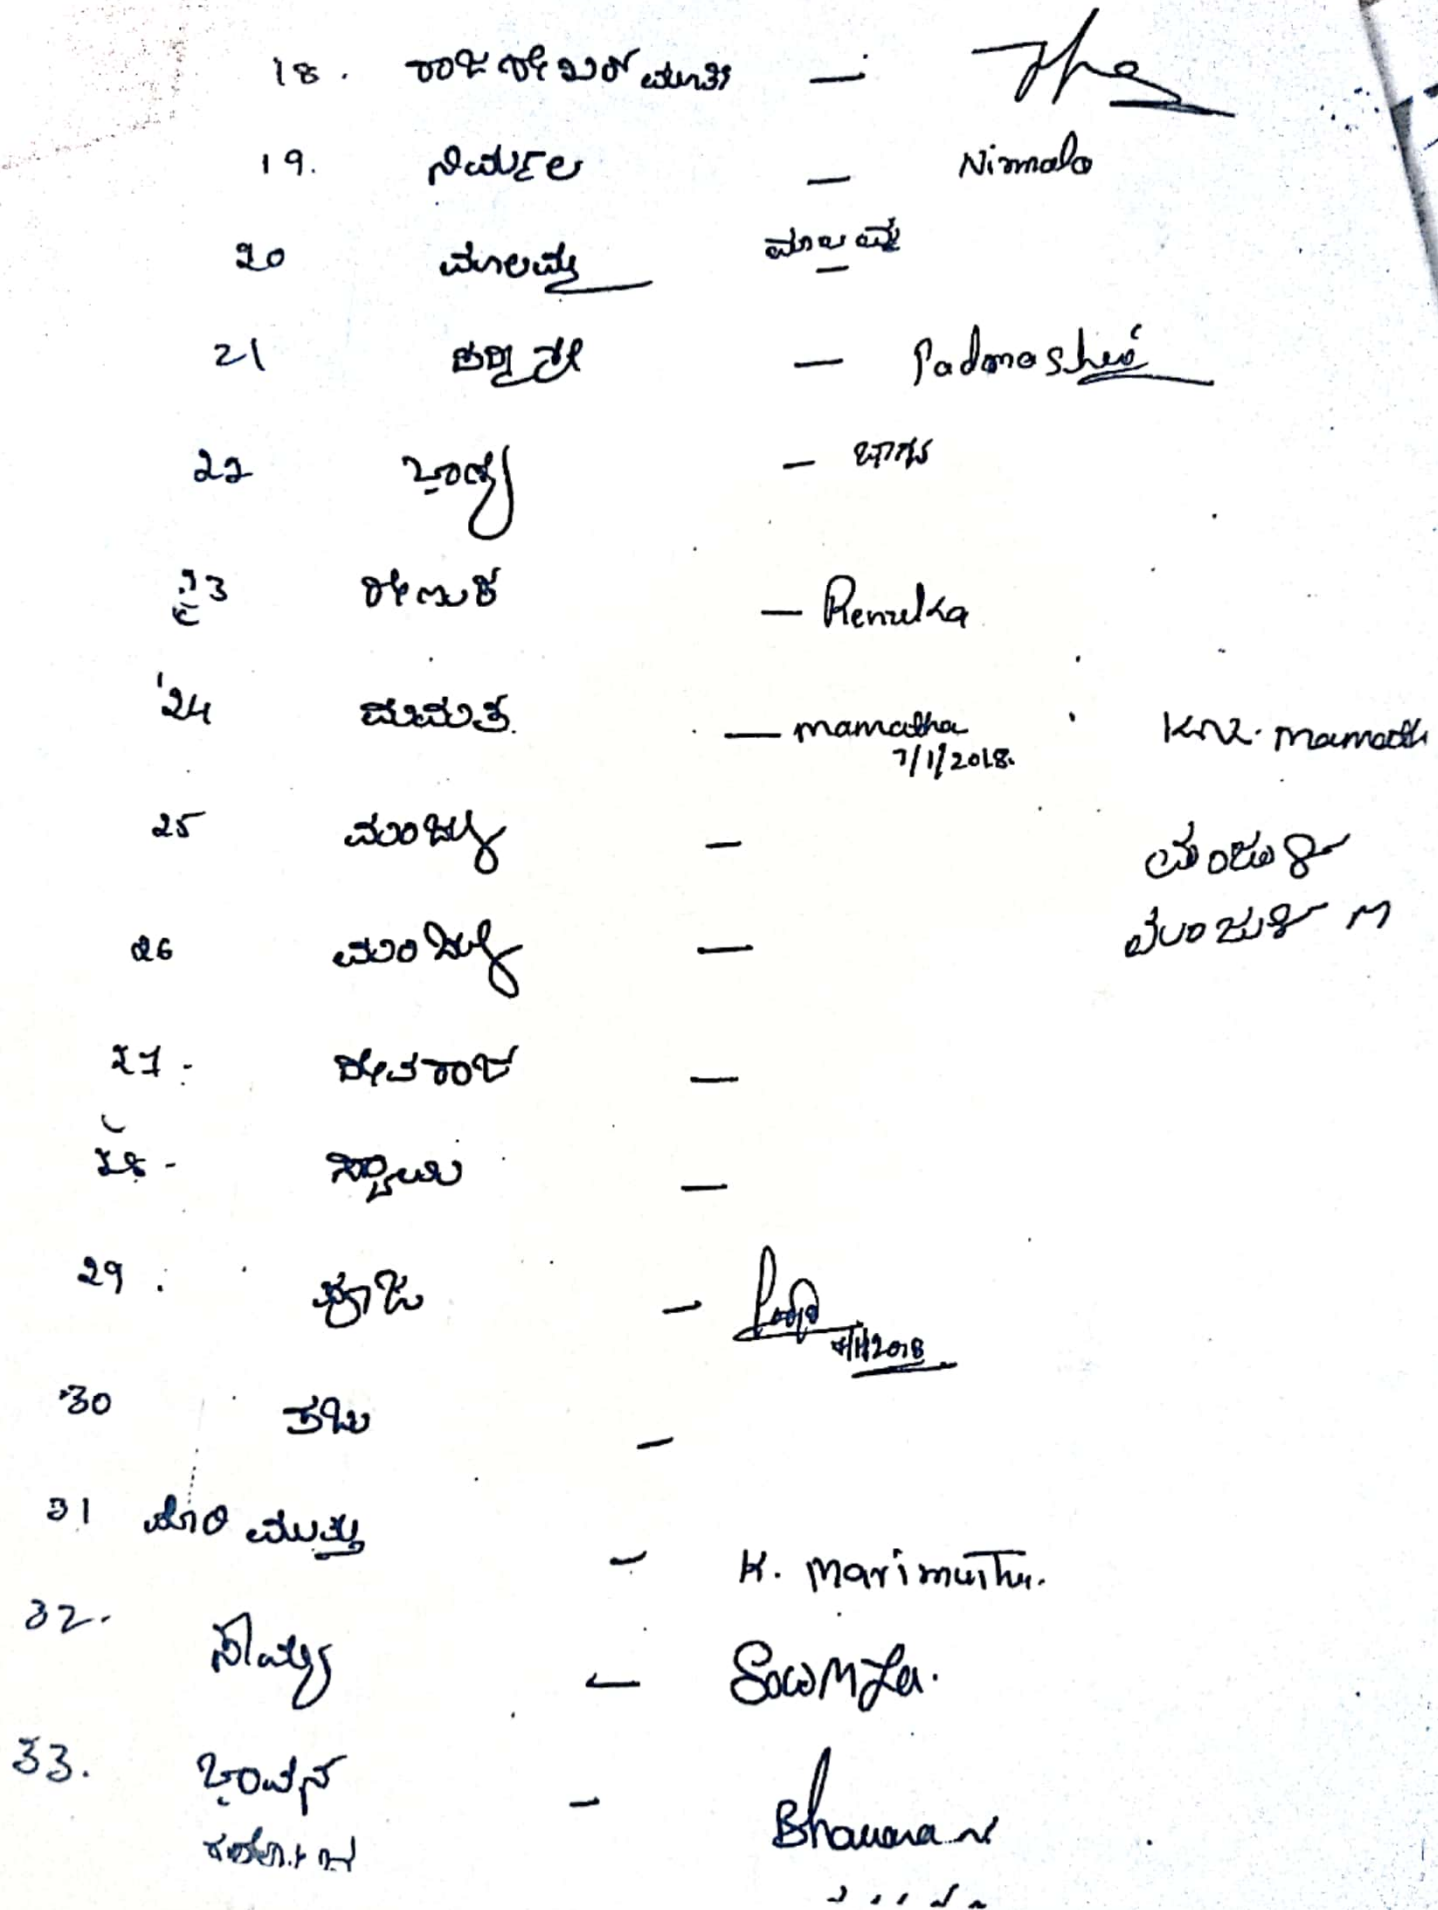 18. ರಾಜಶೇಖರ್ ಮೂರ್ತಿ —
19. ನಿರ್ಮಲ — Nirmala
20 ಮಾಲಮ್ಮ — ಮಾಲಮ್ಮ
21 ಪದ್ಮಶ್ರೀ — Padmashri
22 ಭಾಗ್ಯ — ಭಾಗ್ಯ
23 ರೇಣುಕ — Renuka
24 ಮಮತ. — mamatha K.N. mamath
7/1/2018.
25 ಮಂಜುಳ — ಮಂಜುಳ
26 ಮಂಜುಳ — ಮಂಜುಳ M
27. ದೇವರಾಜ —
28 -
29. ಪೂಜ — 7/1/2018
30 —
31 ಮಾರಿ ಮುತ್ತು — K. Marimuthu.
32. ಸೌಮ್ಯ — Sowmya.
33. ಭಾವನ — Bhavana N